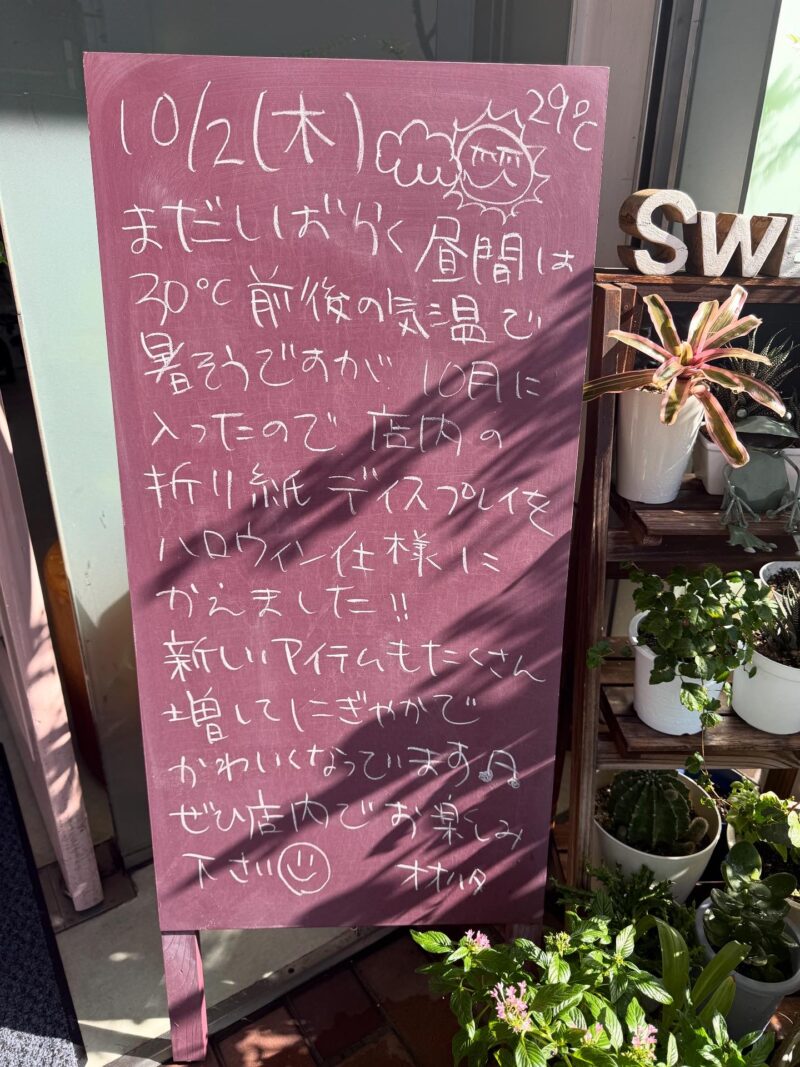 10/2(木) 29℃
まだしばらく昼間は
30℃前後の気温で
暑そうですが 10月に
入ったので 店内の
折り紙ディスプレイを
ハロウィン仕様に
かえました!!
新しいアイテムもたくさん
増してにぎやかで
かわいくなっています♫
ぜひ店内でお楽しみ
下さい☺
SW